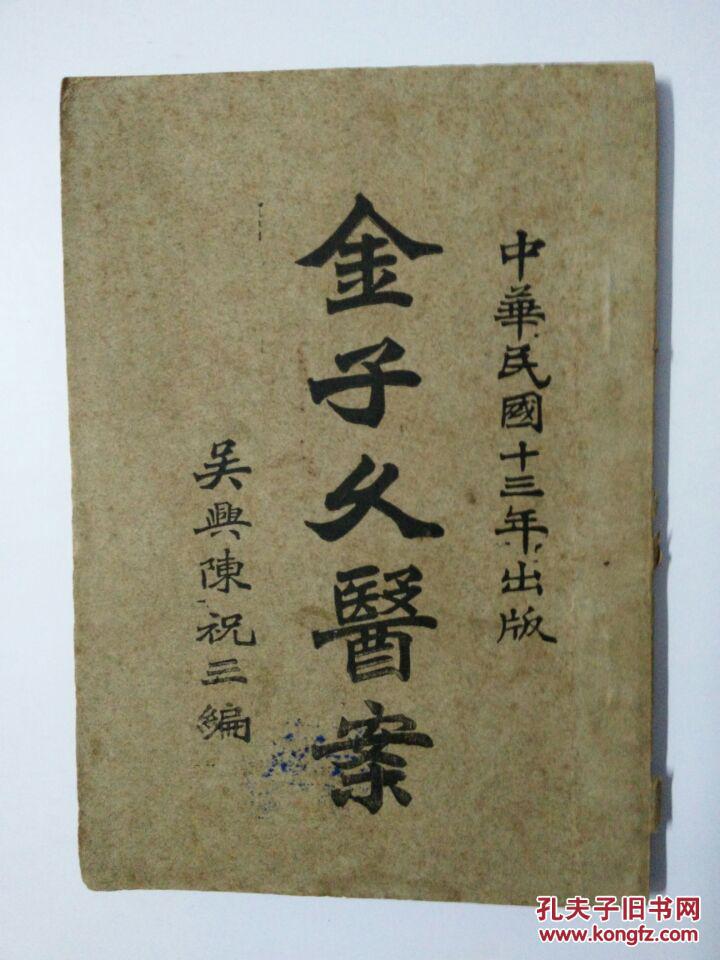 中華民國十三年出版
金子久醫案
吴興陳祝三編
孔夫子旧书网
www.kongfz.com